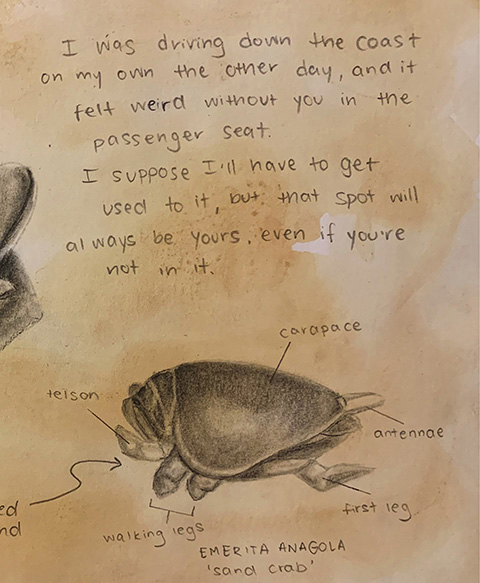 I was driving down the coast
on my own the other day, and it
felt weird without you in the
passenger seat.
I suppose I'll have to get
used to it, but that spot will
always be yours, even if you're
not in it.
carapace
telson
antennae
ed
nd
first leg
walking legs
EMERITA ANAGOLA
'sand crab'